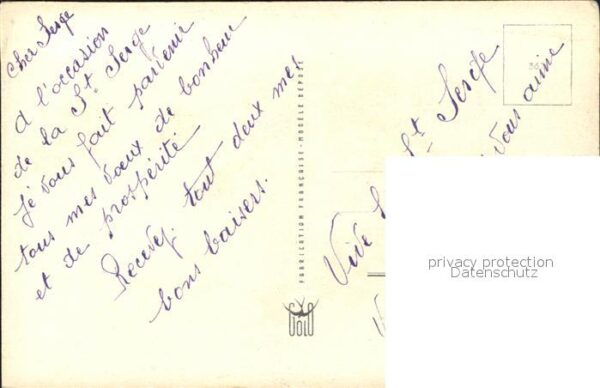 Cher Serge
à l'occasion
de la St Serge
je vous fait parvenir
tous mes vœux de bonheur
et de prospérité
Recevez tout deux mes
bons baisers.
FABRICATION FRANÇAISE - MODÈLE DÉPOSÉ
Vive St Serge
vous aime
privacy protection
Datenschutz